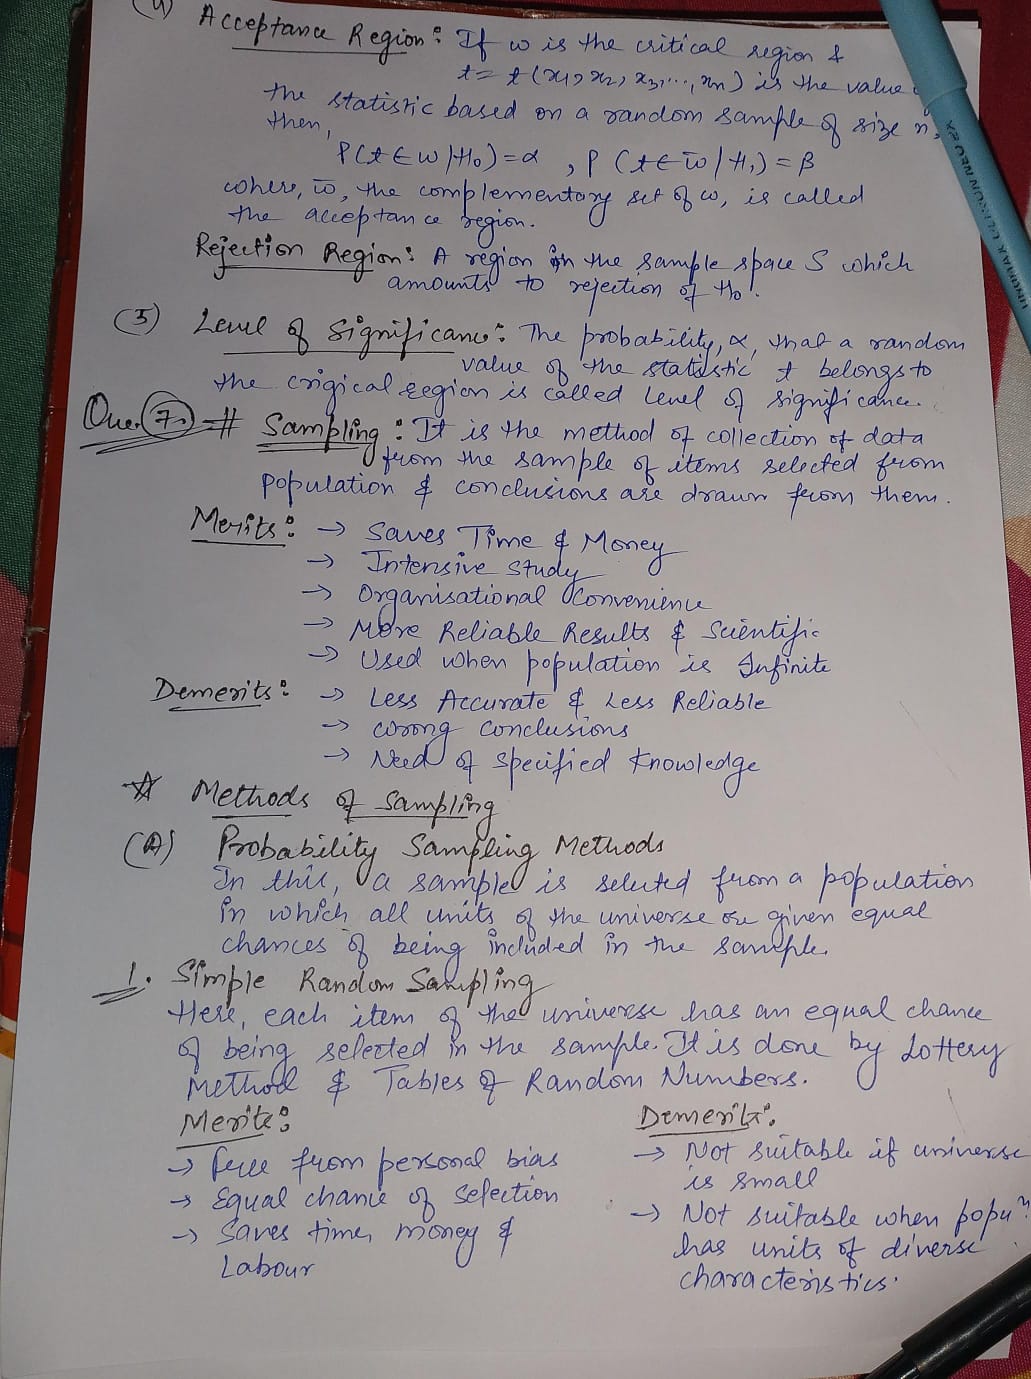 (4) Acceptance Region: If w is the critical region &
t = t(x1, x2, x3, ..., xn) is the value
the statistic based on a random sample of size n,
then,
P(t ∈ w | H₀) = α , P (t ∈ w̄ | H₁) = β
where, w̄, the complementary set of w, is called
the acceptance region.
Rejection Region: A region in the sample space S which
amounts to rejection of H₀.
(5) Level of Significance: The probability, α, that a random
value of the statistic t belongs to
the crigical region is called level of significance.
Que. (7.) # Sampling: It is the method of collection of data
from the sample of items selected from
population & conclusions are drawn from them.
Merits: → Saves Time & Money
→ Intensive Study
→ Organisational Convenience
→ More Reliable Results & Scientific
→ Used when population is Infinite
Demerits: → Less Accurate & Less Reliable
→ Wrong Conclusions
→ Need of Specified Knowledge
☆ Methods of Sampling
(A) Probability Sampling Methods
In this, a sample is selected from a population
in which all units of the universe are given equal
chances of being included in the sample.
1. Simple Random Sampling
Here, each item of the universe has an equal chance
of being selected in the sample. It is done by Lottery
Method & Tables of Random Numbers.
Merits:
→ Free from personal bias
→ Equal chance of Selection
→ Saves time, money &
Labour
Demerits:
→ Not suitable if universe
is small
→ Not suitable when popuⁿ
has units of diverse
characteristics.
UNOMAX ULTRON NEO FX